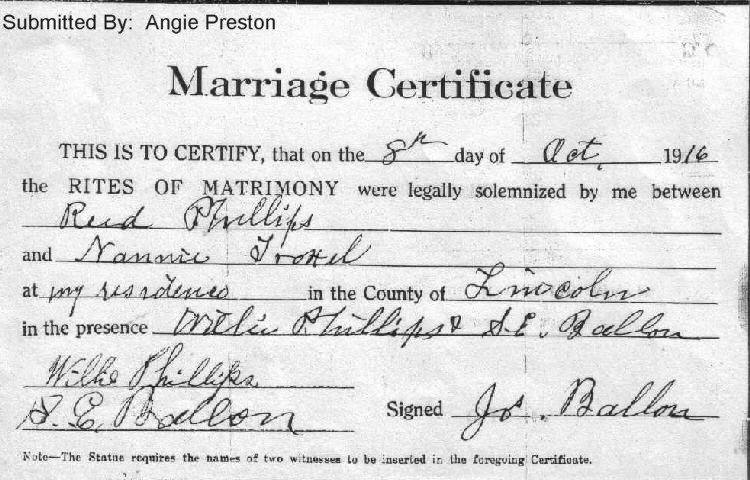 Submitted By: Angie Preston
Marriage Certificate
THIS IS TO CERTIFY, that on the 8th day of Oct. 1916
the RITES OF MATRIMONY were legally solemnized by me between
Reid Phillips
and Nannie Troxel
at my residence in the County of Lincoln
in the presence Willie Phillips & S.E. Ballou
Willie Phillips
S. E. Ballou
Signed Jos. Ballou
Note—The Statue requires the names of two witnesses to be inserted in the foregoing Certificate.